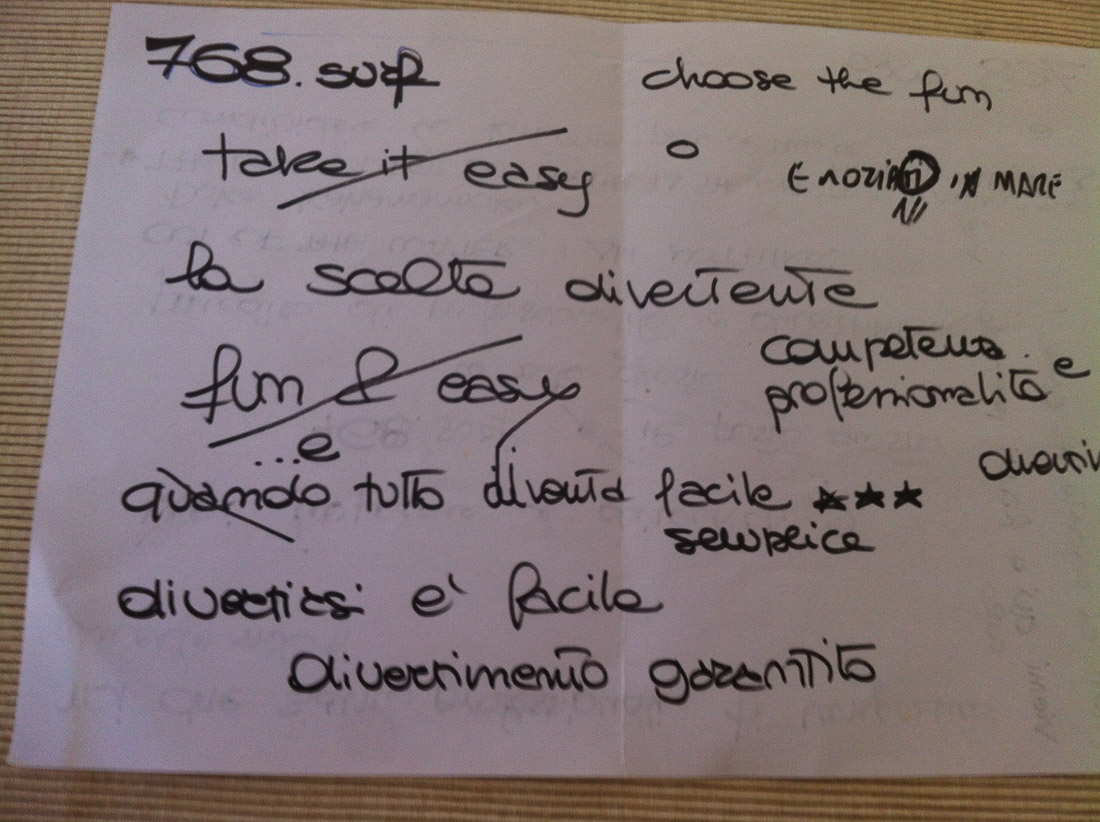 768. surf
choose the fun
take it easy
o
EMOZIONI IN MARE
la scelta divertente
competenza e
professionalità
fun & easy
...e
quando tutto diventa facile ★★★
semplice
divertirsi e' facile
divertimento garantito